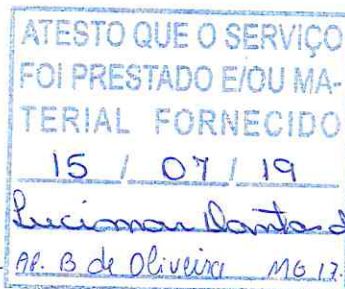 ATESTO QUE O SERVIÇO
FOI PRESTADO E/OU MA-
TERIAL FORNECIDO
15 / 07 / 19
Lucimar Dantas d
AP. B de Oliveira MG 17.